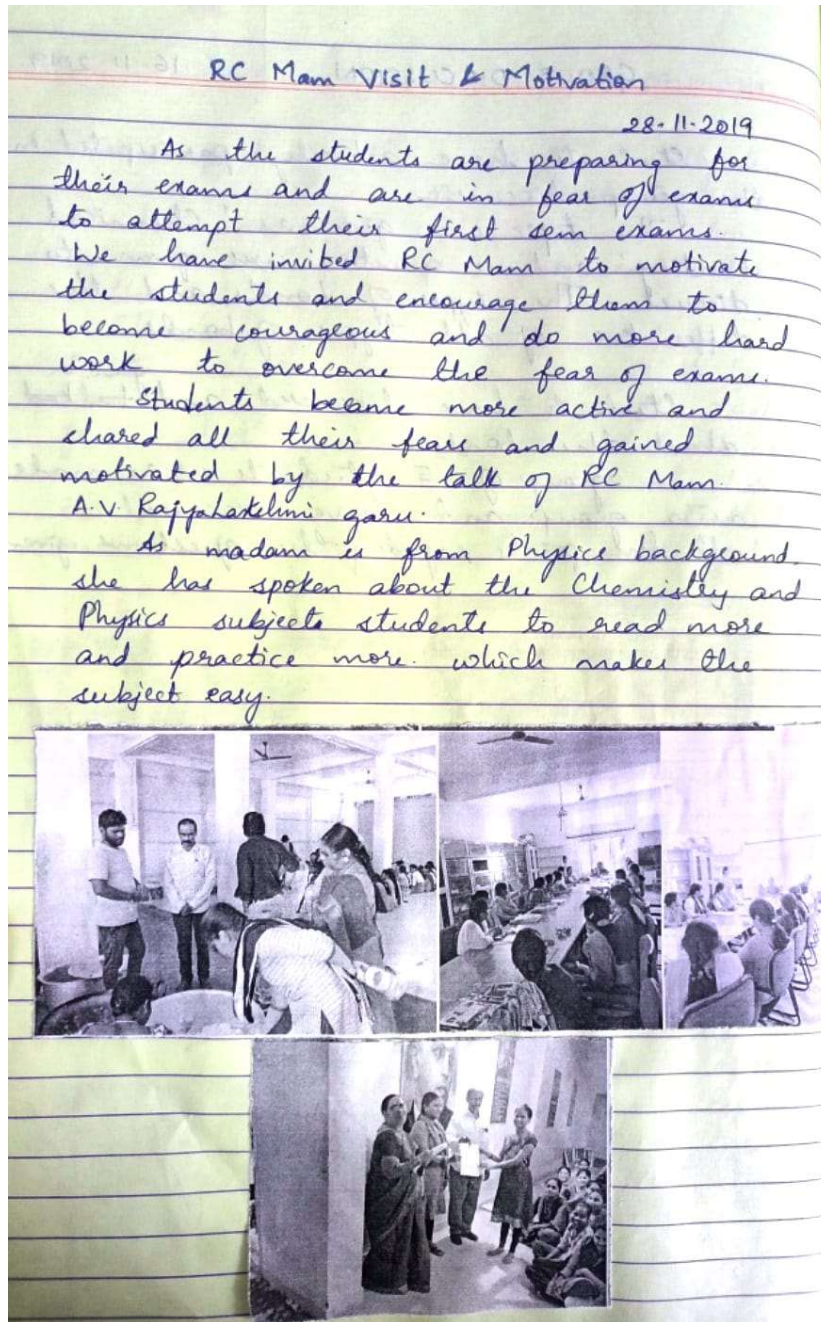 RC Mam Visit & Motivation
28-11-2019
As the students are preparing for
their exams and are in fear of exams
to attempt their first sem exams.
We have invited RC Mam to motivate
the students and encourage them to
become courageous and do more hard
work to overcome the fear of exams.
Students became more active and
shared all their fears and gained
motivated by the talk of RC Mam.
A.V. Rajyalakshmi garu.
As madam is from Physics background.
she has spoken about the Chemistry and
Physics subjects students to read more
and practice more. which makes the
subject easy.